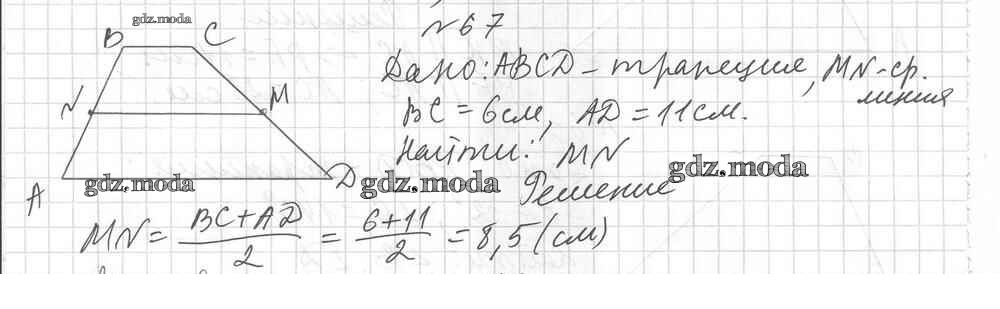 gdz.moda
№67
B C
Дано: ABCD - трапеция, MN - ср. линия
N M
BC = 6см, AD = 11см.
Найти: MN
A D
gdz.moda gdz.moda gdz.moda
Решение
MN = (BC+AD)/2 = (6+11)/2 = 8,5 (см)